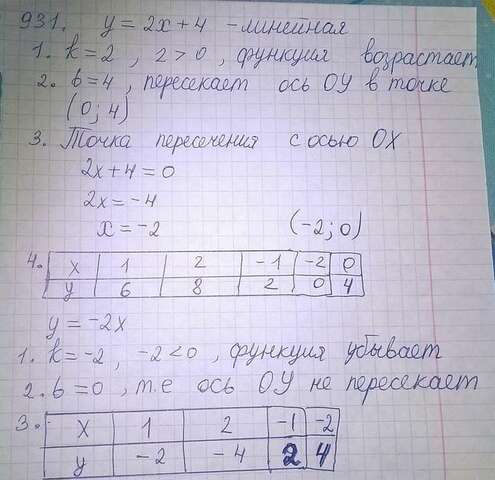 931. y = 2x + 4 - линейная
1. k = 2, 2 > 0, функция возрастает
2. b = 4, пересекает ось ОУ в точке
(0; 4)
3. Точка пересечения с осью ОХ
2x + 4 = 0
2x = -4
x = -2 (-2; 0)
4. x 1 2 -1 -2 0
y 6 8 2 0 4
y = -2x
1. k = -2, -2 < 0, функция убывает
2. b = 0, т.е ось ОУ не пересекает
3. x 1 2 -1 -2
y -2 -4 2 4